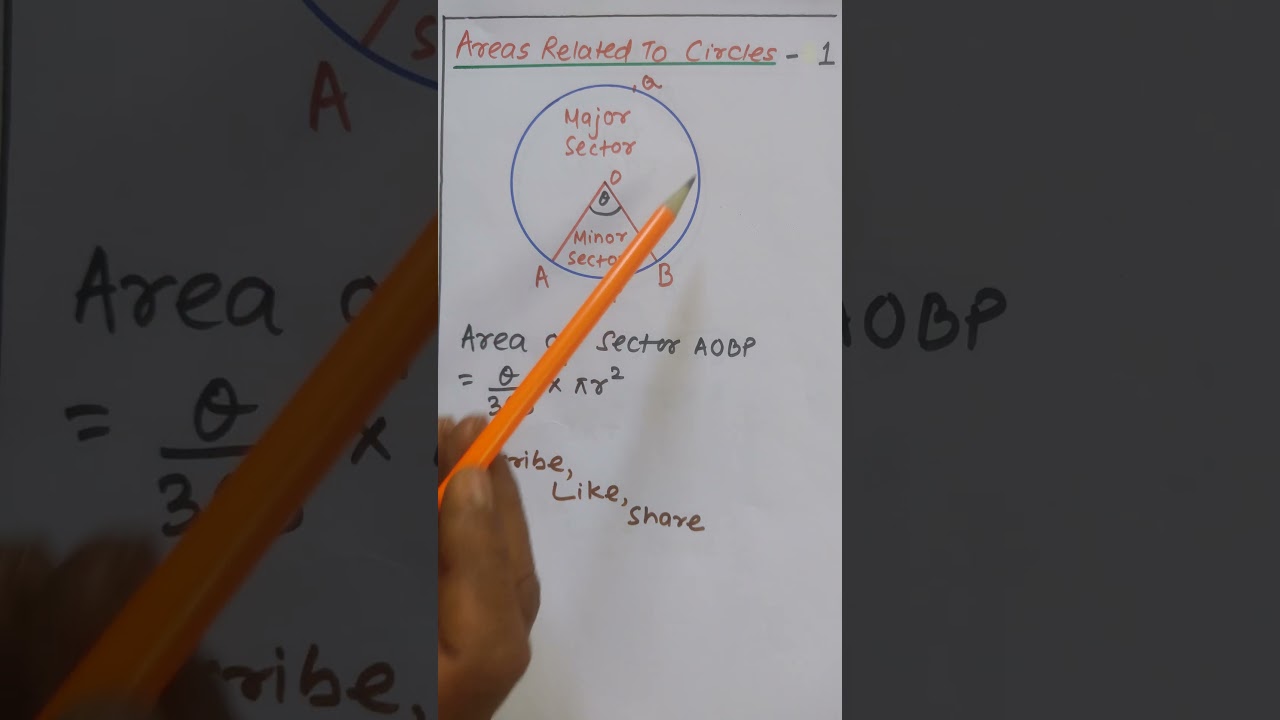 Areas Related To Circles - 1
Q
Major
Sector
O
θ
Minor
A B
Area Sector AOBP
= θ × πr²
Like,
Share